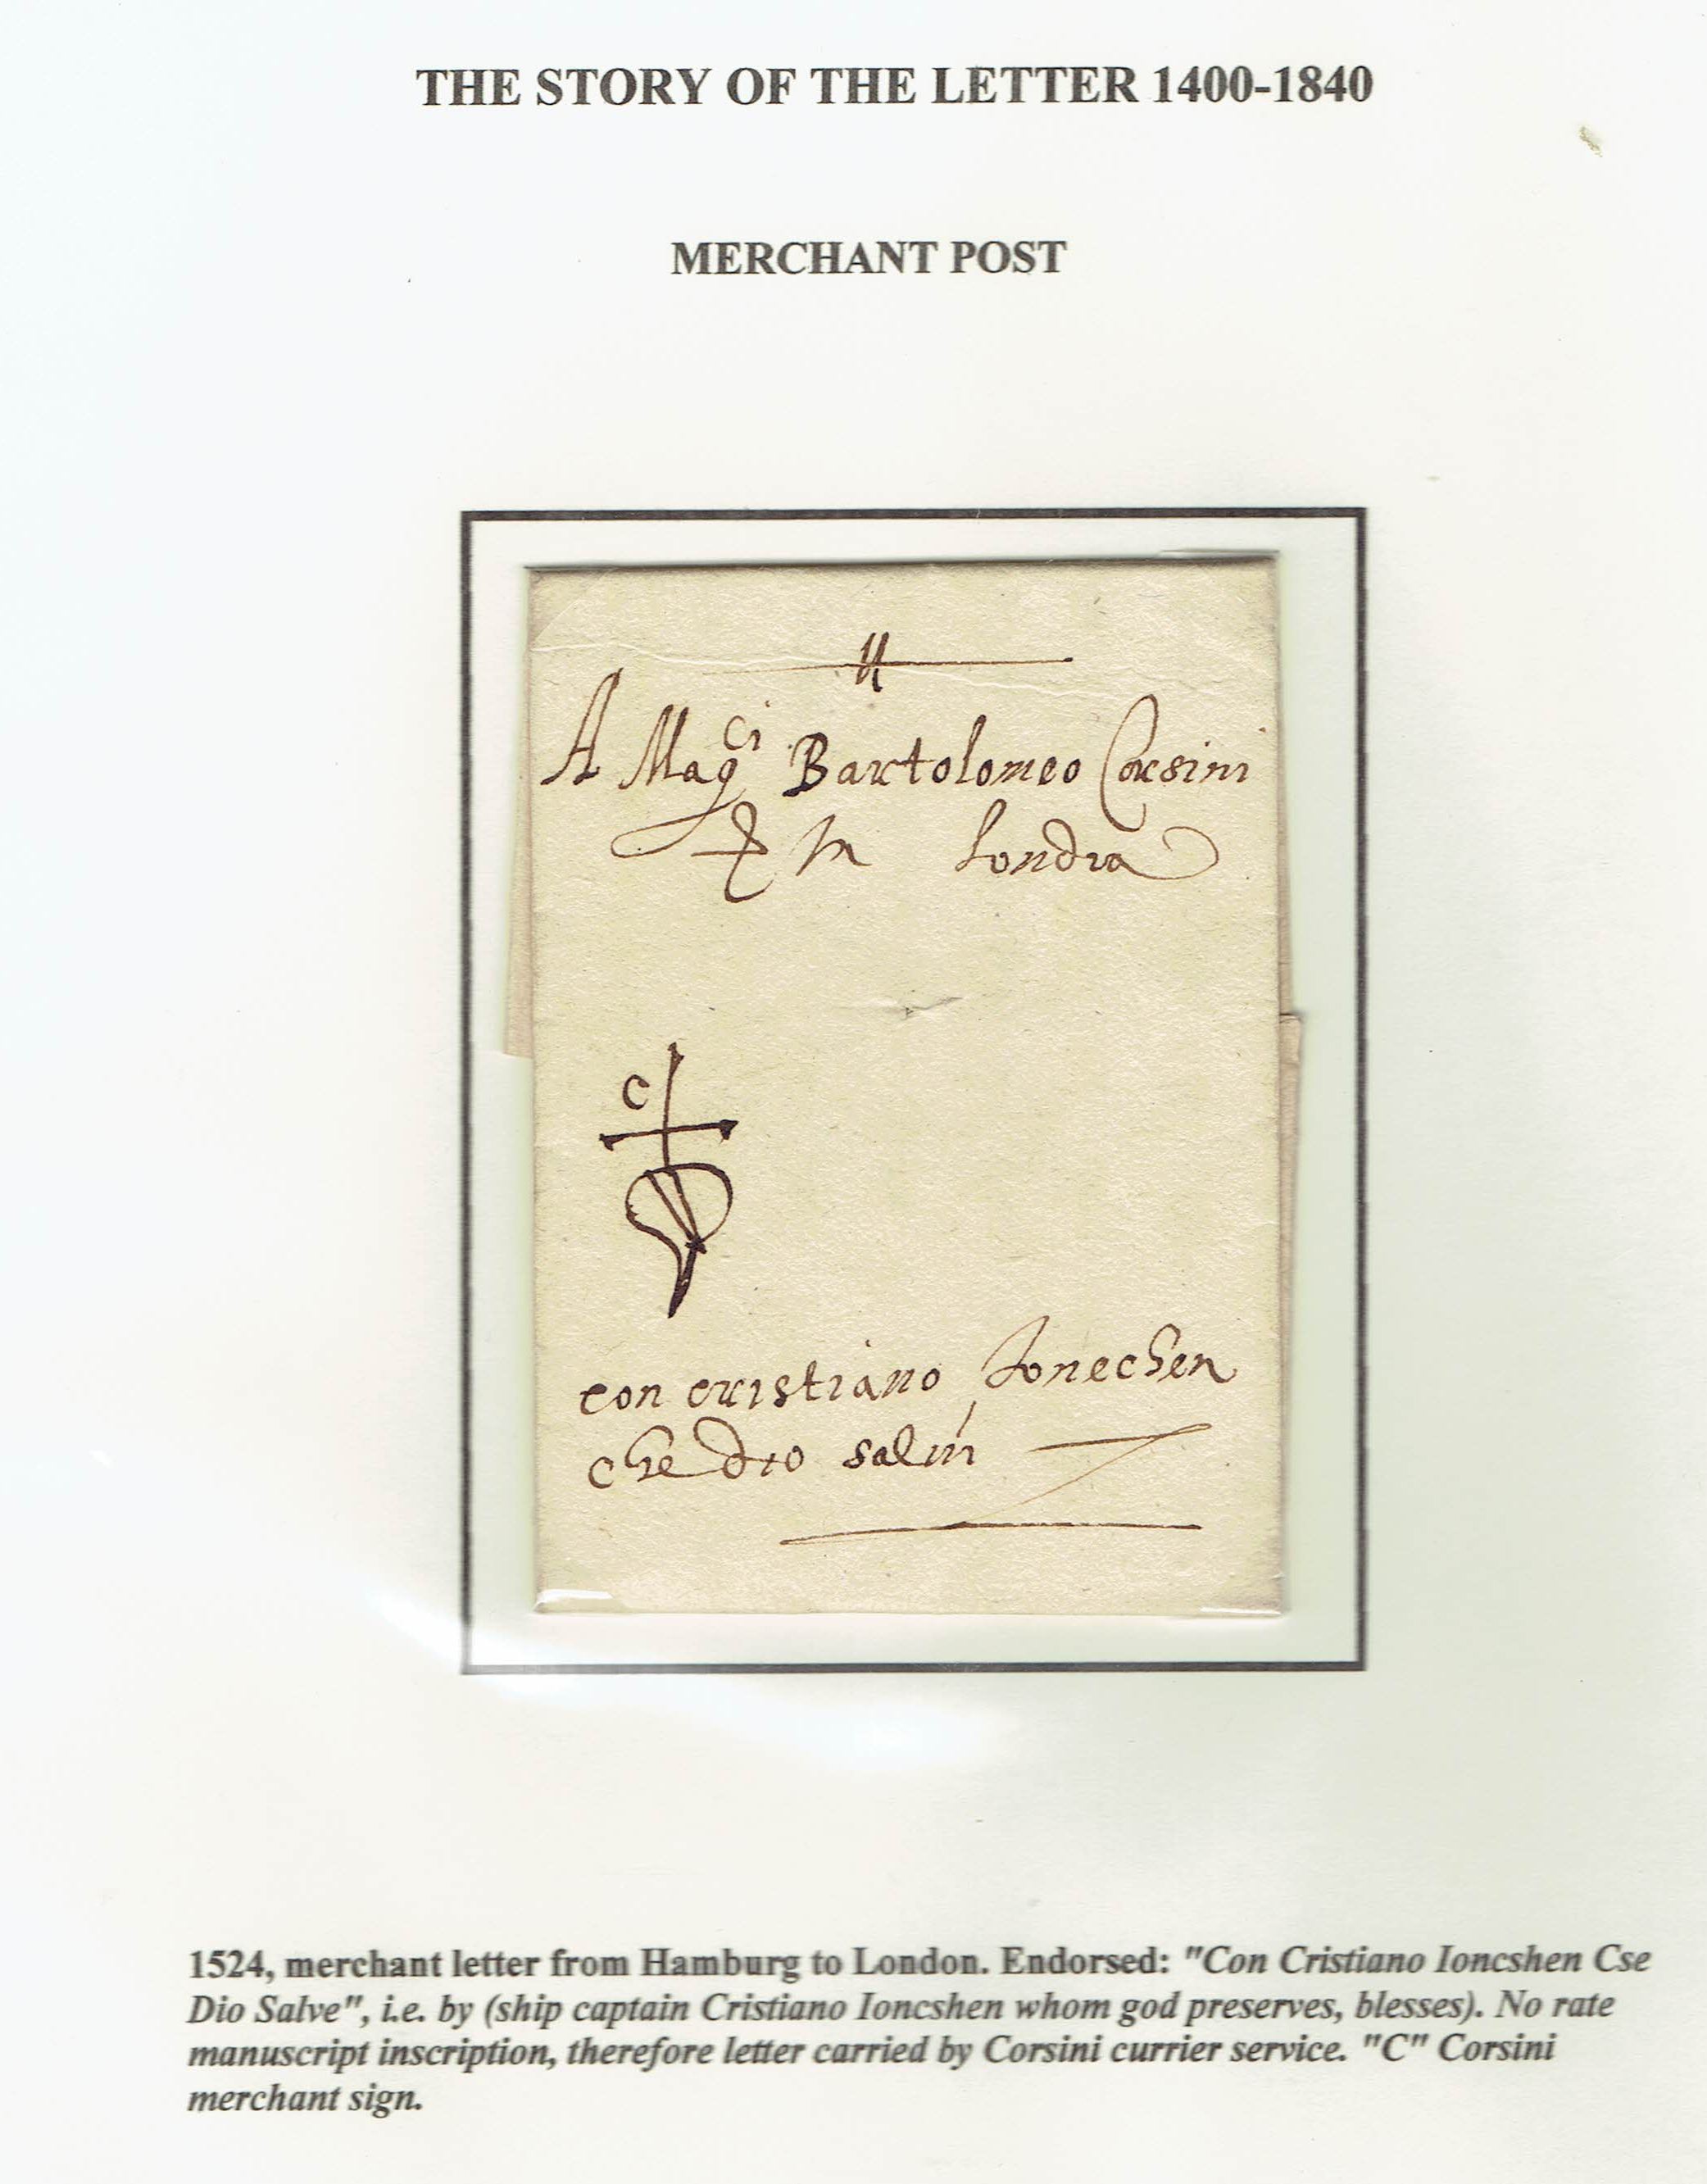 THE STORY OF THE LETTER 1400-1840
MERCHANT POST
A Mag^ci Bartolomeo Corsini
In Londra
C
con cristiano Ionechen
che dio salvi
1524, merchant letter from Hamburg to London. Endorsed: "Con Cristiano Ioncshen Cse
Dio Salve", i.e. by (ship captain Cristiano Ioncshen whom god preserves, blesses). No rate
manuscript inscription, therefore letter carried by Corsini currier service. "C" Corsini
merchant sign.